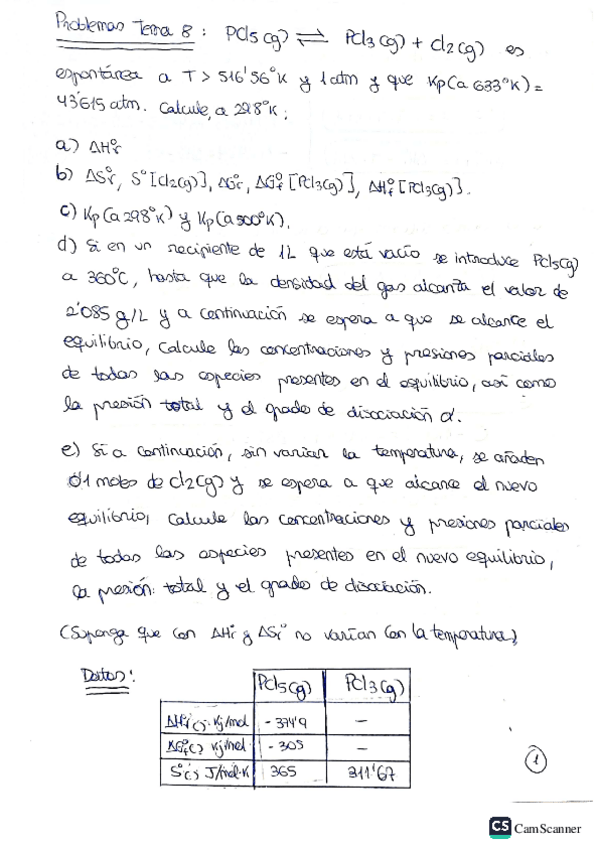 Problemas Tema 8 : PCl5(g) ⇌ PCl3(g) + Cl2(g) es
espontánea a T > 516'56°K y 1 atm y que Kp(a 633°K) =
43'615 atm. Calcule, a 298°K:
a) ΔHºr
b) ΔSºr, Sº[Cl2(g)], ΔGºr, ΔGºf [PCl3(g)], ΔHºf [PCl3(g)].
c) Kp(a 298°K) y Kp(a 500°K).
d) Si en un recipiente de 1L que está vacío se introduce PCl5(g)
a 360°C, hasta que la densidad del gas alcanza el valor de
2'085 g/L y a continuación se espera a que se alcance el
equilibrio, calcule las concentraciones y presiones parciales
de todas las especies presentes en el equilibrio, así como
la presión total y el grado de disociación α.
e) Si a continuación, sin variar la temperatura, se añaden
0'1 moles de Cl2(g) y se espera a que alcance el nuevo
equilibrio, calcule las concentraciones y presiones parciales
de todas las especies presentes en el nuevo equilibrio,
la presión total y el grado de disociación.
(Suponga que con ΔHºr y ΔSºr no varían con la temperatura)
Datos:
PCl5(g) PCl3(g)
ΔHºf() Kj/mol -374'9 —
ΔGºf() Kj/mol -305 —
Sº() J/mol·K 365 311'67
1
CS CamScanner